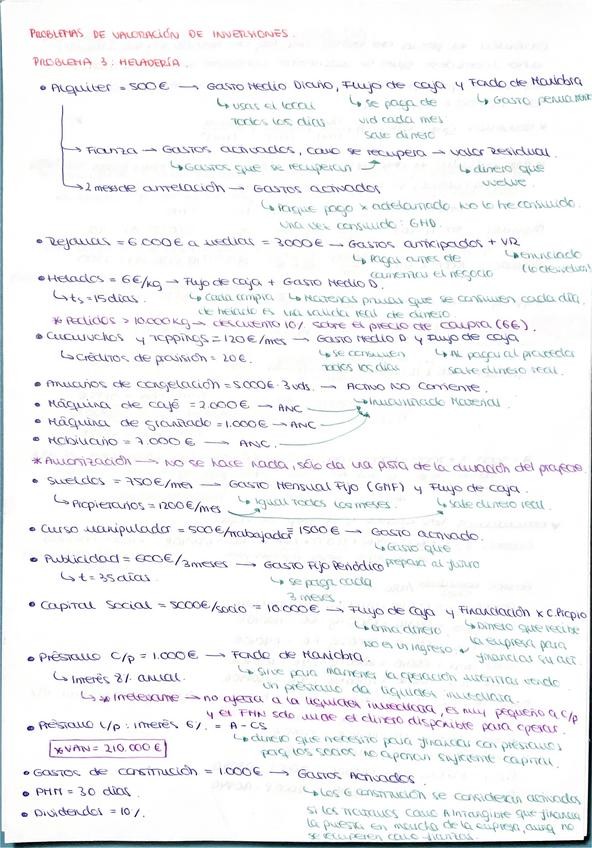 PROBLEMAS DE VALORACIÓN DE INVERSIONES.
PROBLEMA 3: HELADERÍA.
• Alquiler = 500€ → Gasto Medio Diario, Flujo de caja y Fondo de Maniobra
↳ usas el local todos los días
↳ se paga de vid cada mes sale dinero
↳ Gasto permanente
→ Fianza → Gastos activados, como se recupera → Valor Residual.
↳ Gastos que se recuperan
↳ dinero que vuelve.
→ 2 meses de antelación → Gastos activados
↳ Porque pago x adelantado. No lo he consumido. Una vez consumido: GMD.
• Rejanas = 6000€ a medias = 3000€ → Gastos anticipados + VR
↳ Pagas antes de comenzar el negocio
↳ enunciado (lo devuelven)
• Helados = 6€/kg → Flujo de caja + Gasto Medio D.
↳ ts = 15 días.
↳ cada compra de helado es una salida real de dinero.
↳ Materias primas que se consumen cada día.
* Pedidos > 10.000kg → descuento 10% sobre el precio de compra (6€).
• Cucuruchos y toppings = 120€/mes → Gasto Medio D y Flujo de caja
↳ Créditos de provisión = 20€.
↳ se consumen todos los días
↳ Al pagar al proveedor sale dinero real.
• Armarios de congelación = 5000€·3 uds. → Activo No Corriente.
↳ Inmovilizado Material.
• Máquina de café = 2.000€ → ANC
• Máquina de granizado = 1.000€ → ANC
• Mobiliario = 7.000€ → ANC.
* Amortización → No se hace nada, sólo da una pista de la duración del proyecto.
• Sueldos = 750€/mes → Gasto Mensual Fijo (GMF) y Flujo de caja.
↳ Propietarios = 1200€/mes
↳ igual todos los meses.
↳ Sale dinero real.
• Curso manipulador = 500€/trabajador = 1500€ → Gasto activado.
↳ Gasto que prepara al futuro
• Publicidad = 600€/3meses → Gasto Fijo Periódico
↳ t = 35 días.
↳ se paga cada 3 meses.
• Capital Social = 5000€/socio = 10.000€ → Flujo de Caja y Financiación x C.Propio
↳ entra dinero. No es un ingreso
↳ Dinero que recibe la empresa para financiar su act.
• Préstamo c/p = 1.000€ → Fondo de Maniobra.
↳ Interés 8% anual.
↳ Sirve para mantener la operación mientras vendo. Un préstamo da liquidez inmediata.
↳ * Irrelevante → no afecta a la liquidez inmediata, es muy pequeño a c/p y el FMN solo mide el dinero disponible para operar.
• Préstamo L/p: interés 6% = A - CS
↳ dinero que necesito para financiar con préstamos porq los socios no aportan suficiente capital.
* VAN = 210.000€
• Gastos de constitución = 1000€ → Gastos Activados.
↳ Los G constitución se consideran activados si los tratamos como A Intangible que financia la puesta en marcha de la empresa, aunq no se recuperen como fianzas.
• PMM = 30 días.
• Dividendos = 10%.